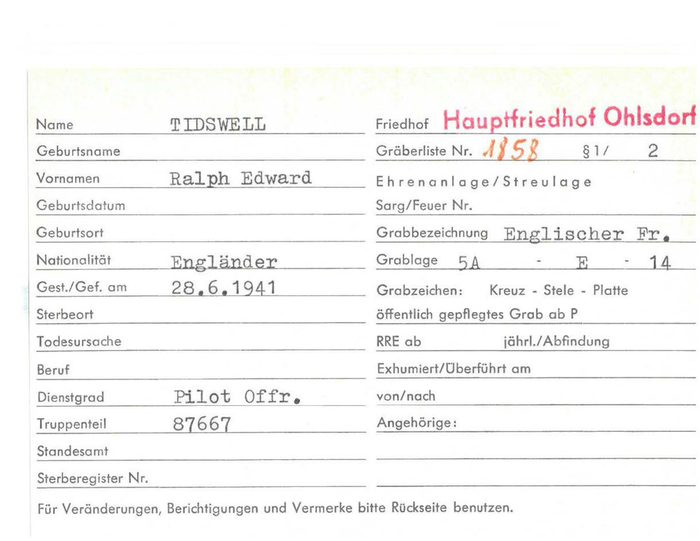 Name TIDSWELL
Geburtsname
Vornamen Ralph Edward
Geburtsdatum
Geburtsort
Nationalität Engländer
Gest./Gef. am 28.6.1941
Sterbeort
Todesursache
Beruf
Dienstgrad Pilot Offr.
Truppenteil 87667
Standesamt
Sterberegister Nr.
Friedhof Hauptfriedhof Ohlsdorf
Gräberliste Nr. 1858 §1/ 2
Ehrenanlage/Streulage
Sarg/Feuer Nr.
Grabbezeichnung Englischer Fr.
Grablage 5A - E - 14
Grabzeichen: Kreuz - Stele - Platte
öffentlich gepflegtes Grab ab P
RRE ab jährl./Abfindung
Exhumiert/Überführt am
von/nach
Angehörige:
Für Veränderungen, Berichtigungen und Vermerke bitte Rückseite benutzen.